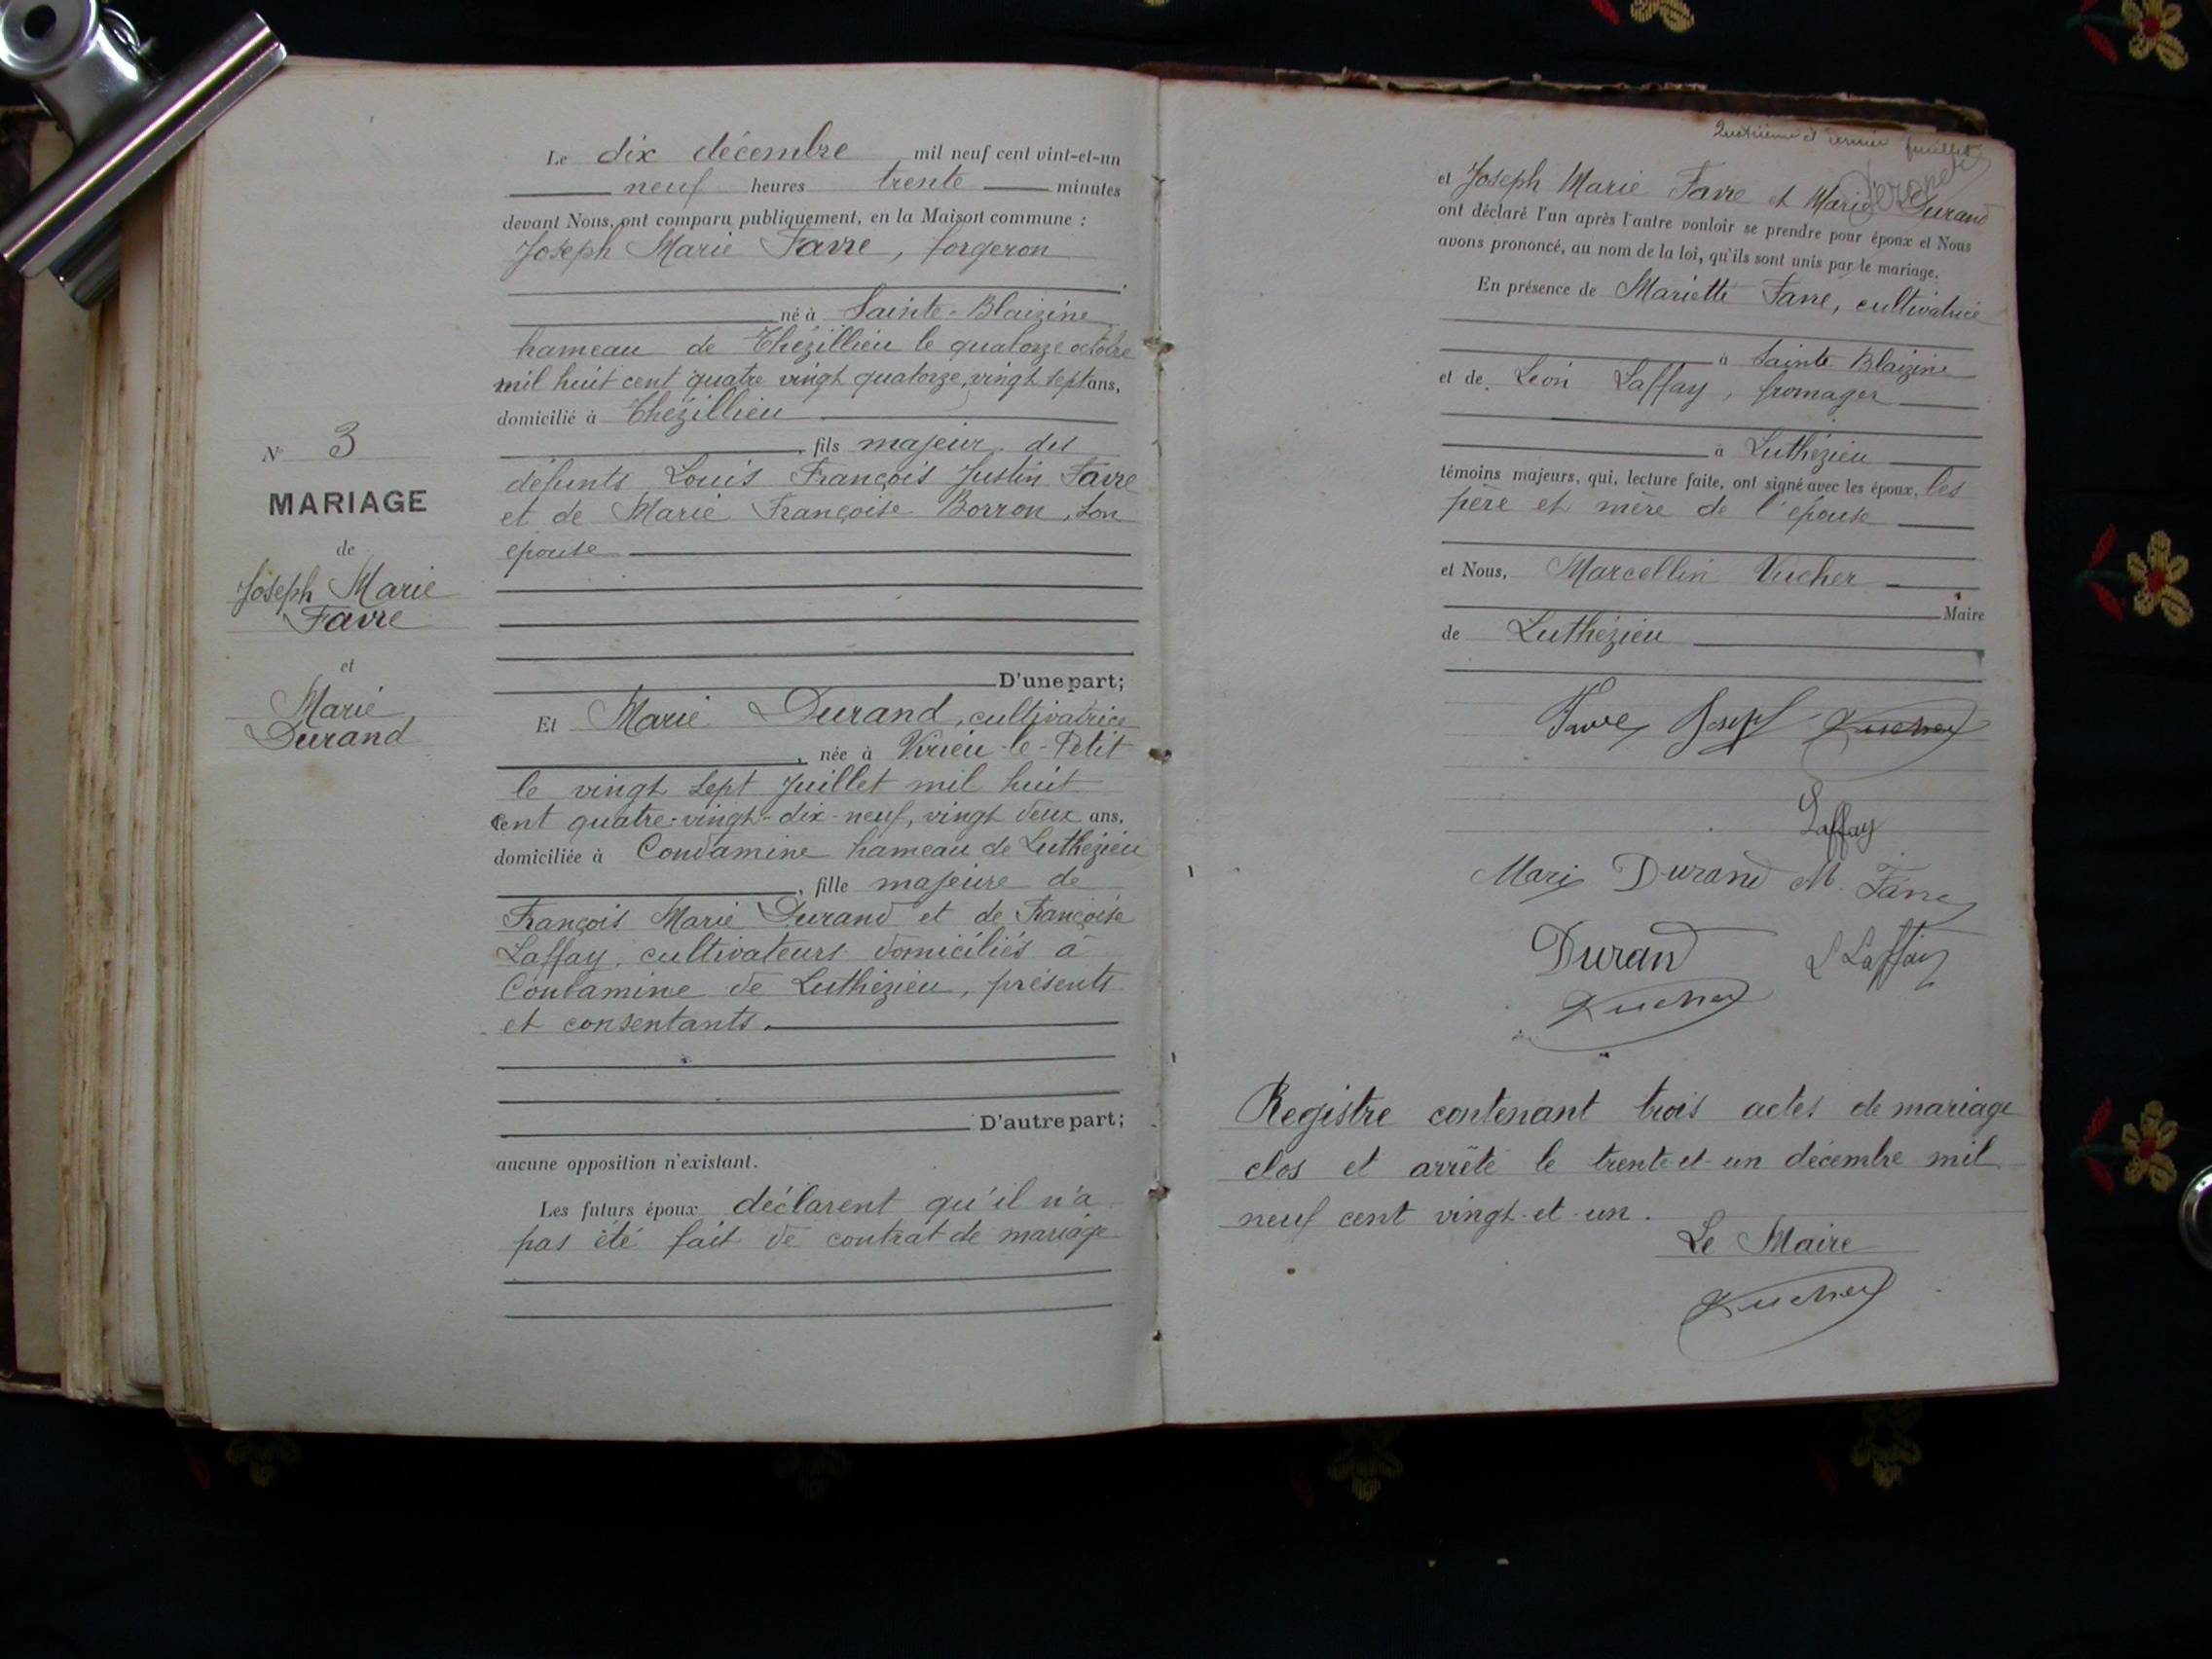 N° 3
MARIAGE
de
Joseph Marie
Favre
et
Marie
Durand
Le dix décembre mil neuf cent vint-et-un
neuf heures trente minutes
devant Nous, ont comparu publiquement, en la Maison commune :
Joseph Marie Favre, forgeron
né à Sainte-Blaizine
hameau de Thézillieu le quatorze octobre
mil huit cent quatre vingt quatorze, vingt sept ans,
domicilié à Thézillieu
, fils majeur des
défunts Louis François Justin Favre
et de Marie Françoise Borron, son
épouse
D'une part;
Et Marie Durand, cultivatrice
, née à Virieu-le-Petit
le vingt sept Juillet mil huit
cent quatre-vingt-dix-neuf, vingt deux ans,
domiciliée à Condamine hameau de Luthézieu
, fille majeure de
François Marie Durand et de Françoise
Laffay, cultivateurs domiciliés à
Condamine de Luthézieu, présents
et consentants.
D'autre part;
aucune opposition n'existant.
Les futurs époux déclarent qu'il n'a
pas été fait de contrat de mariage
Quatrième et dernier feuillet
et Joseph Marie Favre et Marie Durand
ont déclaré l'un après l'autre vouloir se prendre pour époux et Nous
avons prononcé, au nom de la loi, qu'ils sont unis par le mariage.
En présence de Mariette Favre, cultivatrice
à Sainte Blaizine
et de Léon Laffay, fromager
à Luthézieu
témoins majeurs, qui, lecture faite, ont signé avec les époux, les
père et mère de l'épouse
et Nous, Marcellin Vucher
Maire
de Luthézieu
Favre Joseph Vucher
Laffay
Marie Durand M. Favre
Durand L Laffay
Vucher
Registre contenant trois actes de mariage
clos et arrêté le trente-et-un décembre mil
neuf cent vingt-et-un.
Le Maire
Vucher